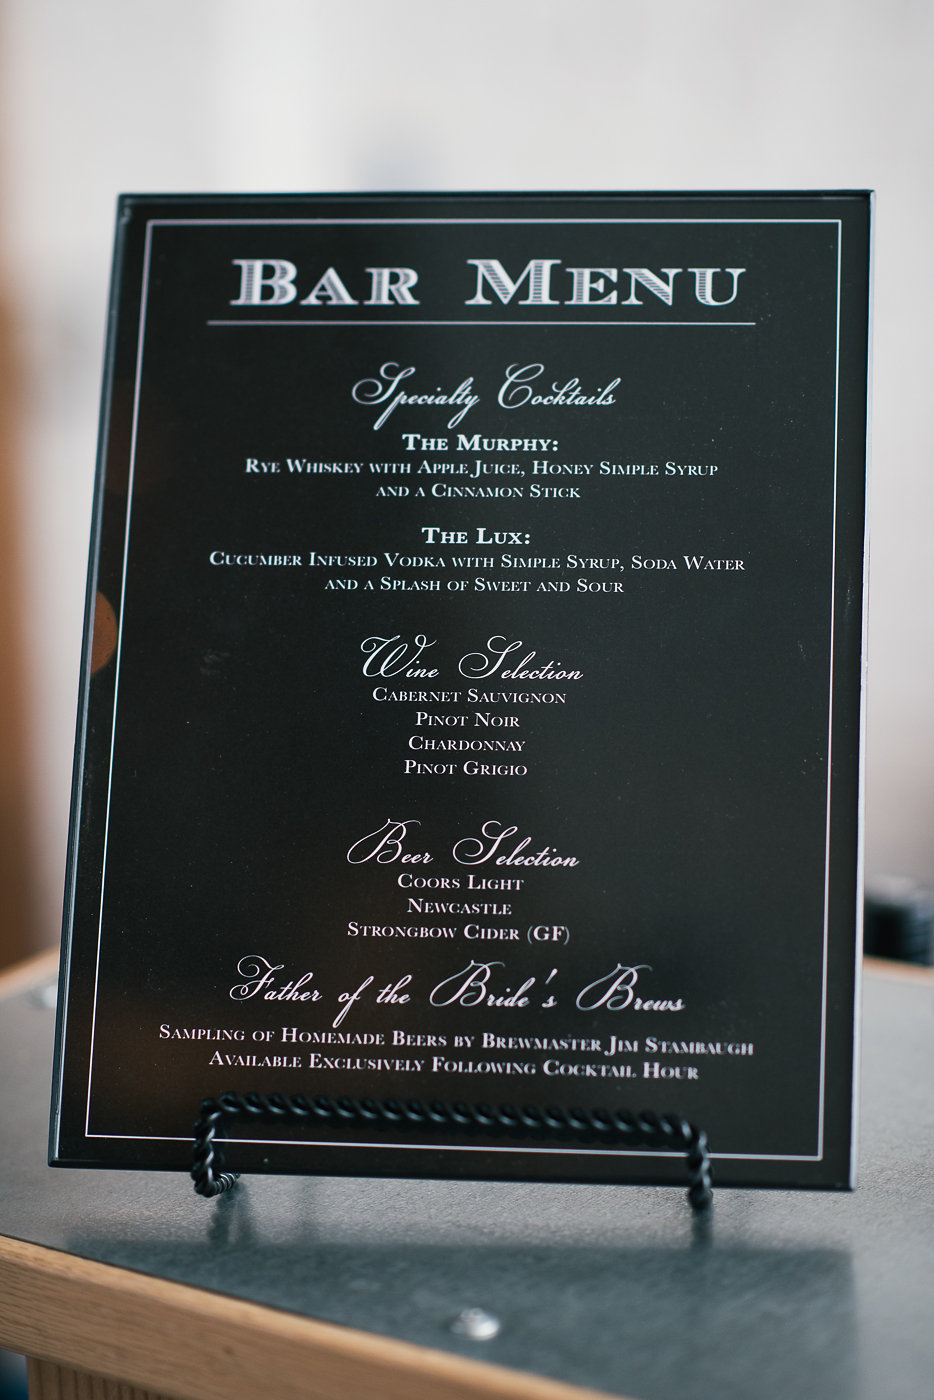 Bar Menu
Specialty Cocktails
The Murphy:
Rye Whiskey with Apple Juice, Honey Simple Syrup
and a Cinnamon Stick
The Lux:
Cucumber Infused Vodka with Simple Syrup, Soda Water
and a Splash of Sweet and Sour
Wine Selection
Cabernet Sauvignon
Pinot Noir
Chardonnay
Pinot Grigio
Beer Selection
Coors Light
Newcastle
Strongbow Cider (GF)
Father of the Bride's Brews
Sampling of Homemade Beers by Brewmaster Jim Stambaugh
Available Exclusively Following Cocktail Hour